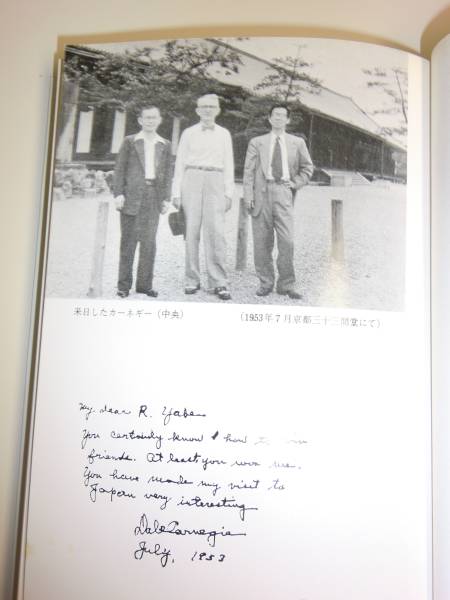 来日したカーネギー（中央）
（1953年7月京都三十三間堂にて）
My dear R. Yabe
You certainly know how to win
friends. At least you won me.
You have made my visit to
Japan very interesting
Dale Carnegie
July, 1953